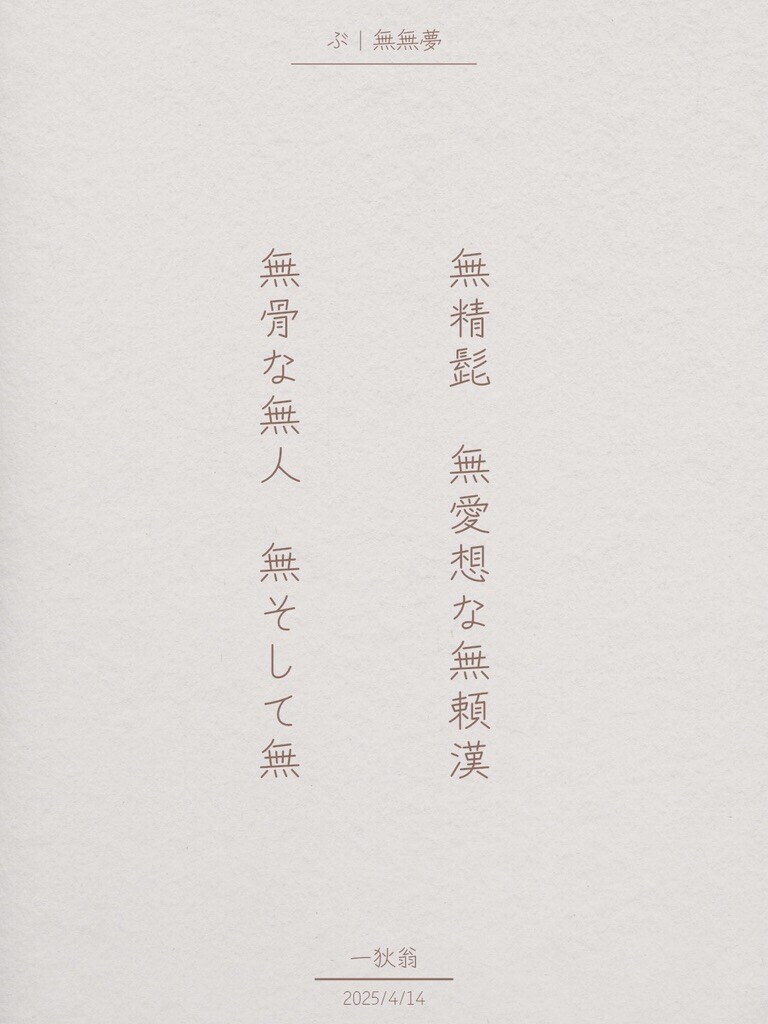 ぶ｜無無夢
無精髭　無愛想な無頼漢
無骨な無人　無そして無
一狄翁
2025/4/14